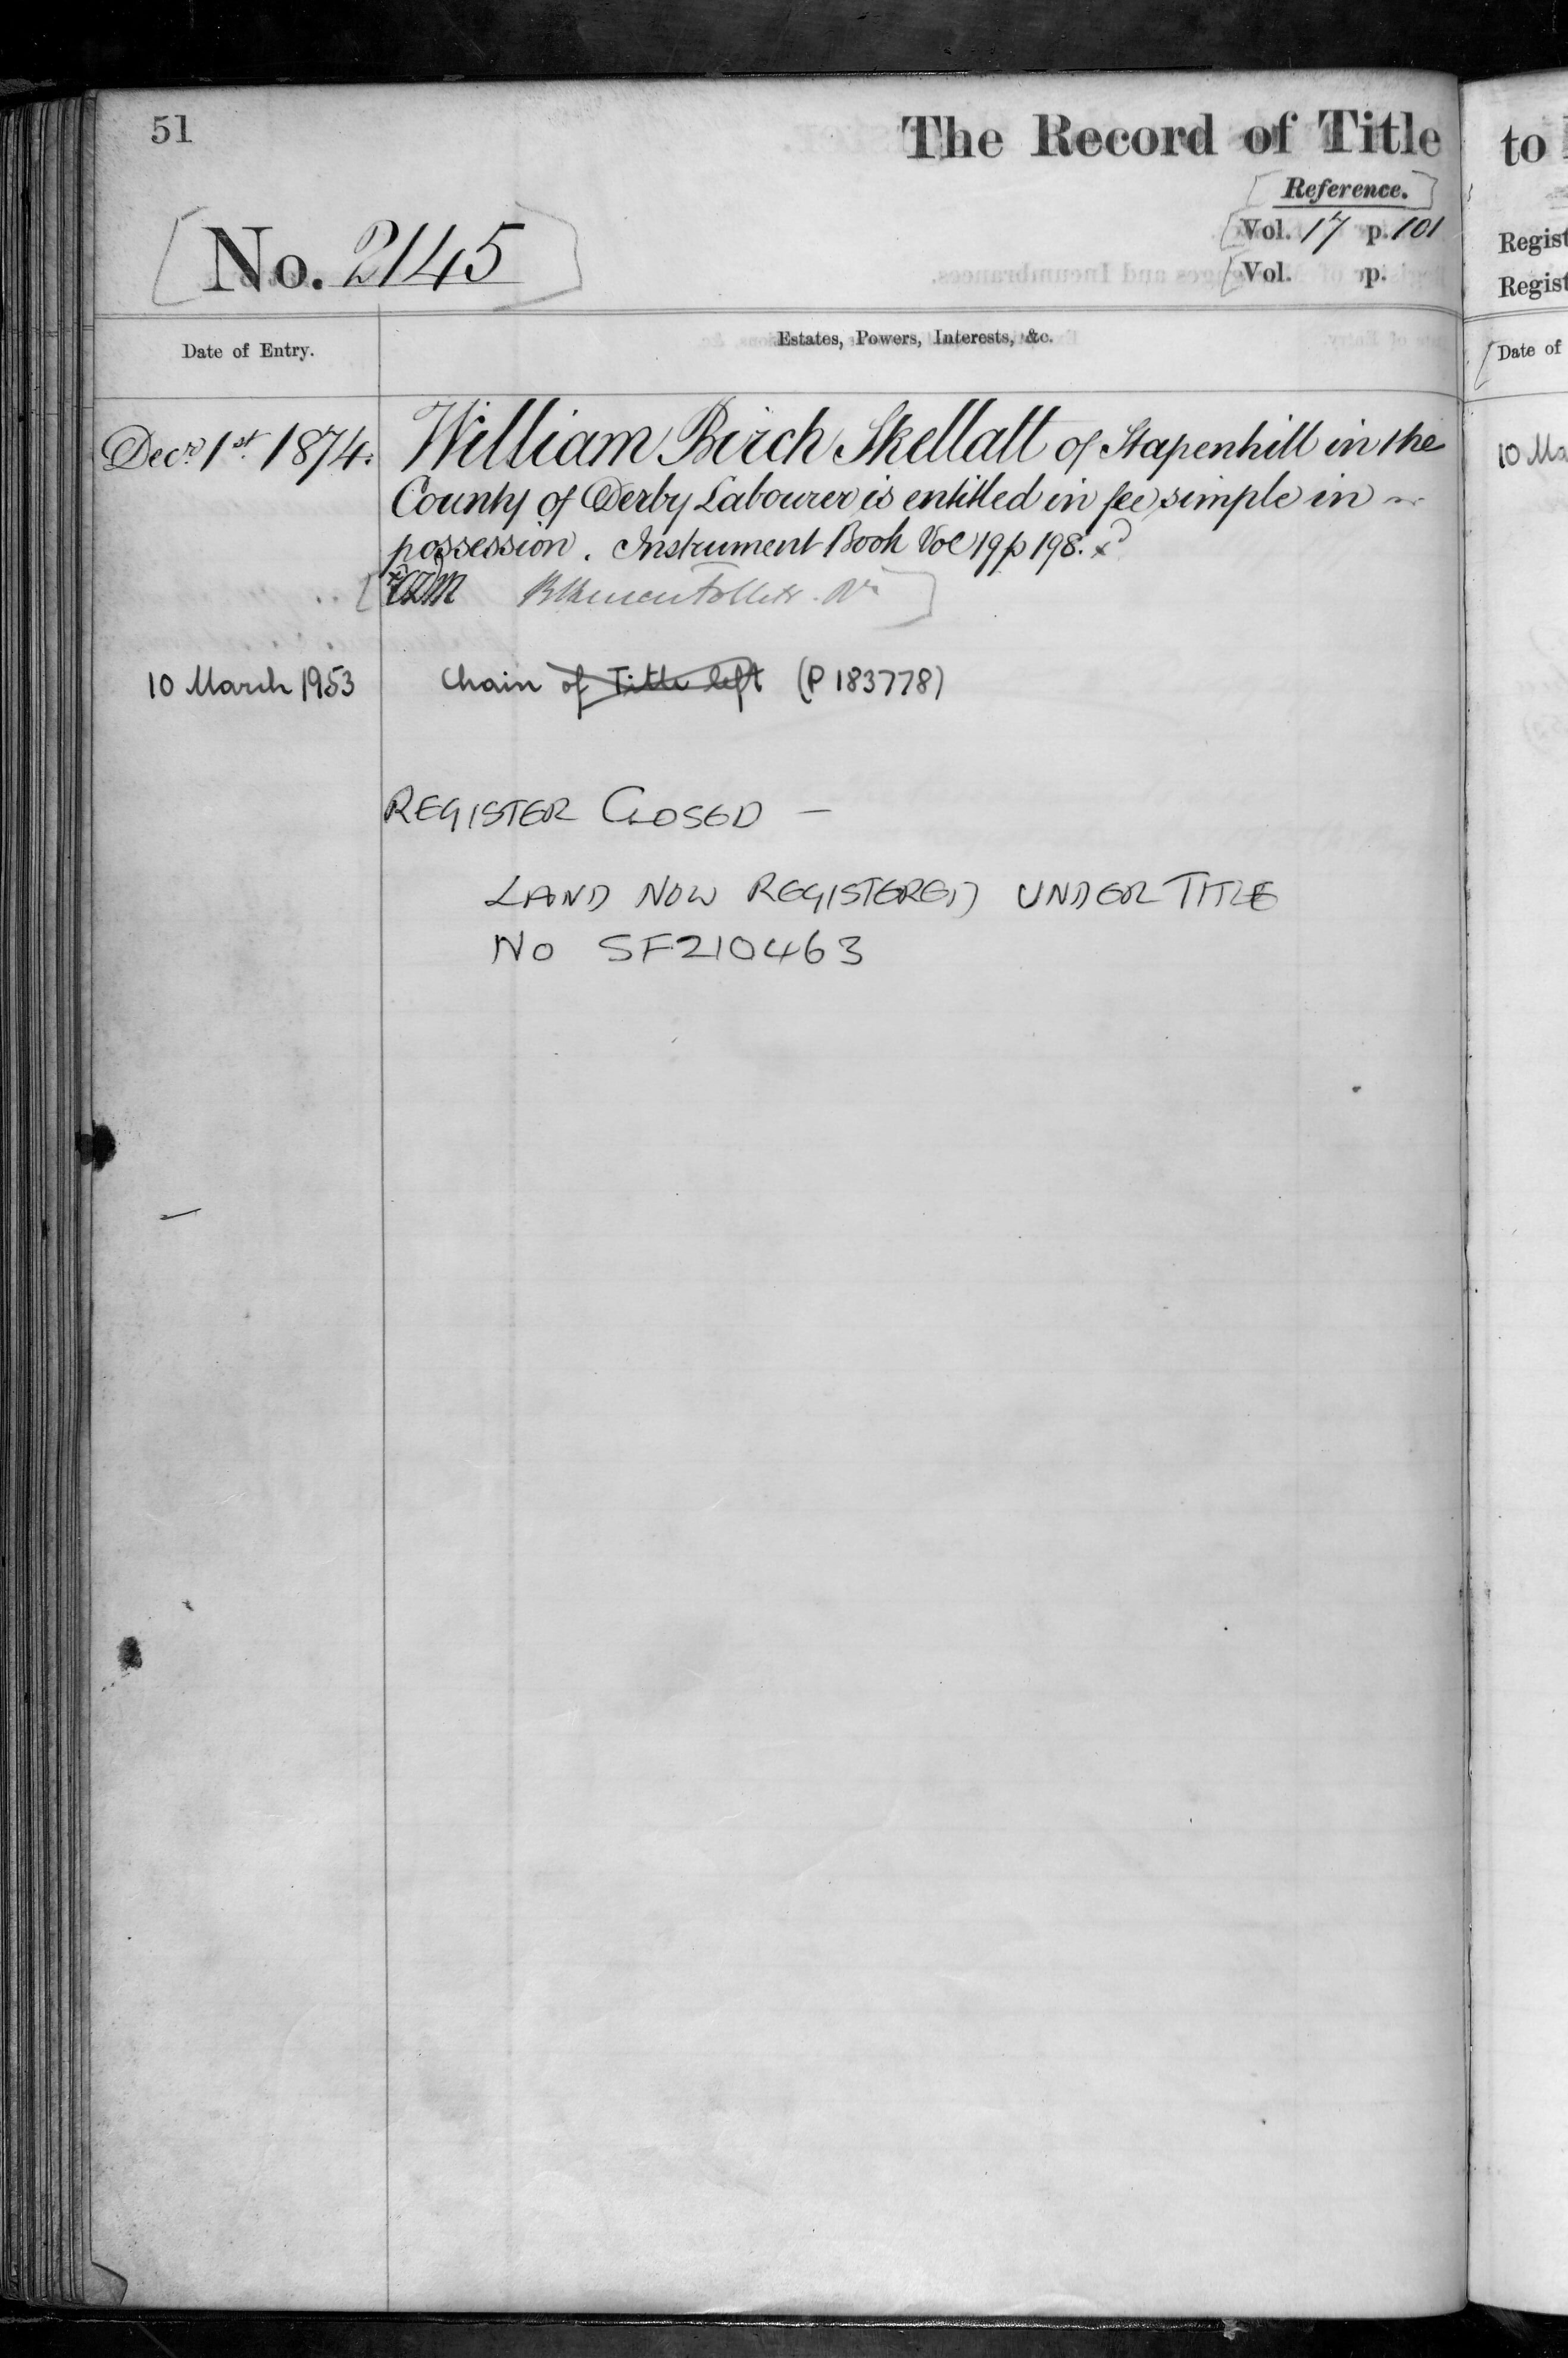 51
The Record of Title
Reference.
No. 2145
Vol. 17 p. 101
Vol. p.
Date of Entry.
Estates, Powers, Interests, &c.
Decr. 1st 1874. William Birch Skellatt of Stapenhill in the
County of Derby Labourer is entitled in fee simple in
possession. Instrument Book Vol 19 p 198. x
10 March 1953 Chain of Title left (P 183778)
REGISTER CLOSED —
LAND NOW REGISTERED UNDER TITLE
No SF210463
to
Regist
Regist
Date of
10 Ma